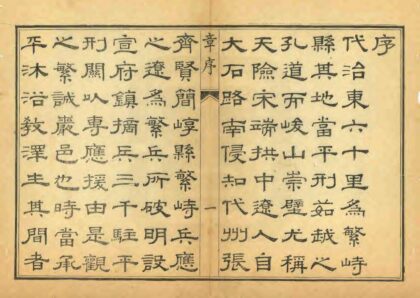 序
代治東六十里為繁峙
縣其地當平刑茹越之
孔道而峻山崇壁尤稱
天險宋端拱中遼人自
大石路南侵知代州張
章序
一
齊賢簡崞縣繁峙兵應
之遼為繁兵所破明設
宣府鎮摘兵三千駐平
刑關以專應援由是觀
之繁誠嚴邑也時當承
平沐浴教澤生其間者